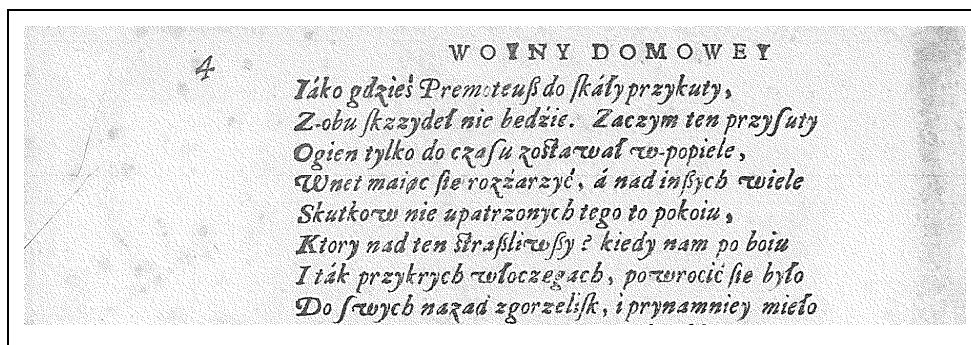 4
WOYNY DOMOWEY
Iáko gdzieś Premoteuß do ſkáły przykuty,
Z-obu ſkzzydeł nie bedzie. Zaczym ten przyſuty
Ogien tylko do czaſu zoſtawał w-popiele,
Wnet maiąc ſie rozżarzyć, á nad inßych wiele
Skutkow nie upatrzonych tego to pokoiu,
Ktory nad ten ſtraßliwßy? kiedy nam po boiu
I ták przykrych włoczegach, powrocić ſie było
Do ſwych nazad zgorzeliſk, i prynamniey mieło